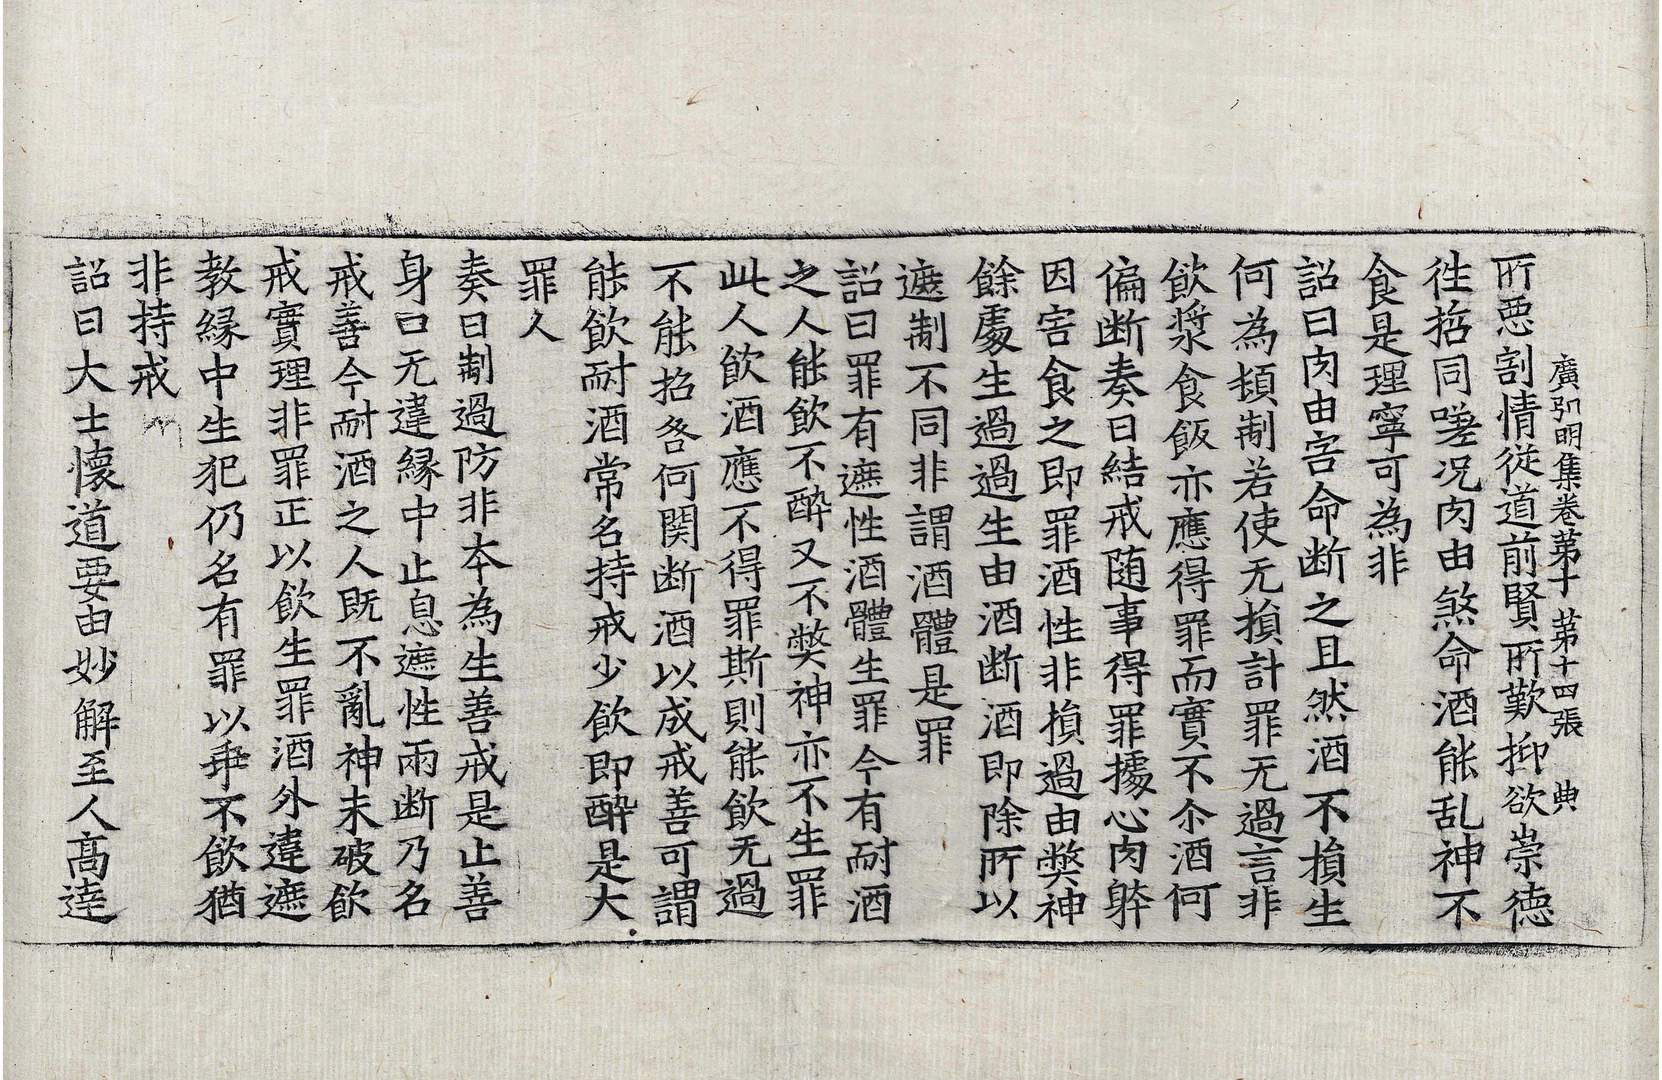 廣弘明集卷苐十 苐十四張 典
所惡割情従道前賢所歎抑欲崇德
徃哲同嗟况肉由煞命酒能乱神不
食是理寧可為非
詔曰肉由害命断之且然酒不損生
何為頓制若使无損計罪无過言非
飲漿食飯亦應得罪而實不尒酒何
偏断奏曰結戒随事得罪據心肉躰
因害食之即罪酒性非損過由弊神
餘處生過過生由酒断酒即除所以
遮制不同非謂酒體是罪
詔曰罪有遮性酒體生罪今有耐酒
之人能飲不醉又不弊神亦不生罪
此人飲酒應不得罪斯則能飲无過
不能招咎何関断酒以成戒善可謂
能飲耐酒常名持戒少飲即醉是大
罪人
奏曰制過防非本為生善戒是止善
身口无違縁中止息遮性兩断乃名
戒善今耐酒之人既不亂神未破飲
戒實理非罪正以飲生罪酒外違遮
教縁中生犯仍名有罪以乖不飲猶
非持戒
詔曰大士懐道要由妙解至人高達